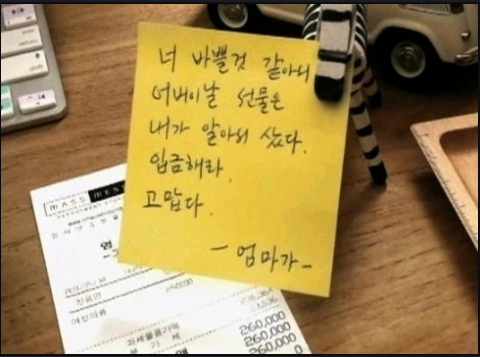 너 바쁠것 같아서
어버이날 선물은
내가 알아서 샀다.
입금해라.
고맙다.
- 엄마가 -
MASS
여성의류
과세물품가액
부 가 세
260,000
260,000
260,000